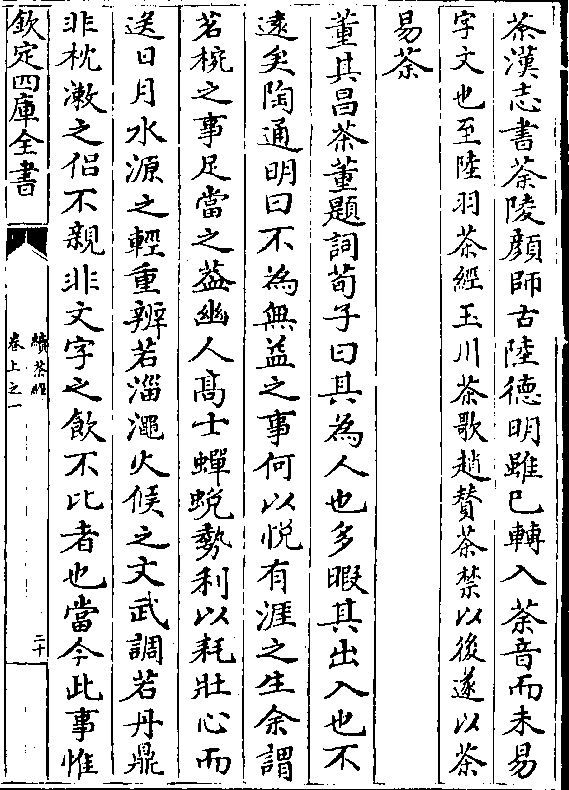 茶漢志書荼陵顔師古陸德明雖已轉入茶音而未易
字文也至陸羽茶經玉川茶歌趙賛茶禁以後遂以茶
易荼
董其昌茶董題詞荀子曰其為人也多暇其出入也不
逺矣陶通明曰不為無益之事何以悦有涯之生余謂
茗椀之事足當之葢幽人髙士蟬蛻勢利以耗壯心而
送日月水源之輕重辨若淄澠火候之文武調若丹鼎
非枕漱之侣不親非文字之飲不比者也當今此事惟
欽定四庫全書
續茶經
卷上之一
二十